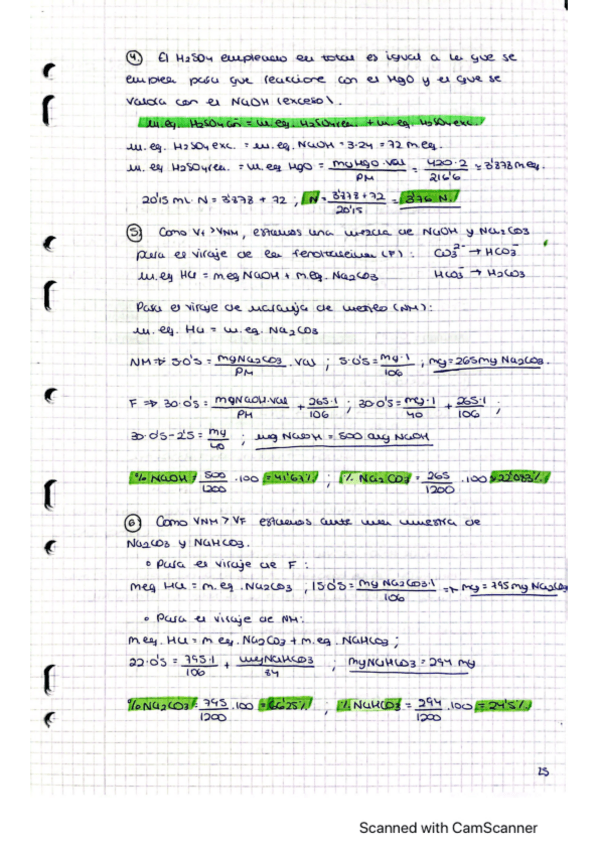 4) El H2SO4 empleado en total es igual a la que se
emplea para que reaccione con el HgO y el que se
valora con el NaOH (exceso).
m.eq. H2SO4 = m.eq. H2SO4rea. + m.eq. H2SO4exc.
m.eq. H2SO4 exc. = m.eq. NaOH = 3·24 = 72 meq.
m.eq H2SO4rea. = m.eq HgO = mgHgO·val / PM = 420·2 / 216'6 = 3'878 meq.
20'15 ml. N = 3'878 + 72 ; N = 3'878+72 / 20'15 = 3'76 N.
5) Como VF>VNM, estamos una mezcla de NaOH y Na2CO3
para el viraje de la fenolftaleina (F): CO3²⁻ → HCO3⁻
m.eq HCl = meq NaOH + meq. Na2CO3 HCO3⁻ → H2CO3
Para el viraje de naranja de metilo (NM):
m.eq. HCl = m.eq. Na2CO3
NM ⇒ 5·0'5 = mgNa2CO3 / PM · val ; 5·0'5 = mg·1 / 106 ; mg = 265mg Na2CO3.
F ⇒ 30·0'5 = mgNaOH·val / PM + 265·1 / 106 ; 30·0'5 = mg·1 / 40 + 265·1 / 106 ;
30·0'5-2'5 = mg / 40 ; mg NaOH = 500 mg NaOH
% NaOH = 500 / 1200 ·100 = 41'67% ; % Na2CO3 = 265 / 1200 ·100 = 22'083%
6) Como VNM > VF estamos ante una muestra de
Na2CO3 y NaHCO3.
• Para el viraje de F :
meq HCl = m.eq. Na2CO3 , 15·0'5 = mg Na2CO3·1 / 106 ⇒ mg = 795mg Na2CO3
• Para el viraje de NM:
meq. HCl = meq. Na2CO3 + m.eq. NaHCO3 ;
22·0'5 = 795·1 / 106 + mgNaHCO3 / 84 ; mgNaHCO3 = 294 mg
%Na2CO3 = 795 / 1200 ·100 = 66'25% ; % NaHCO3 = 294 / 1200 ·100 = 24'5%
25
Scanned with CamScanner